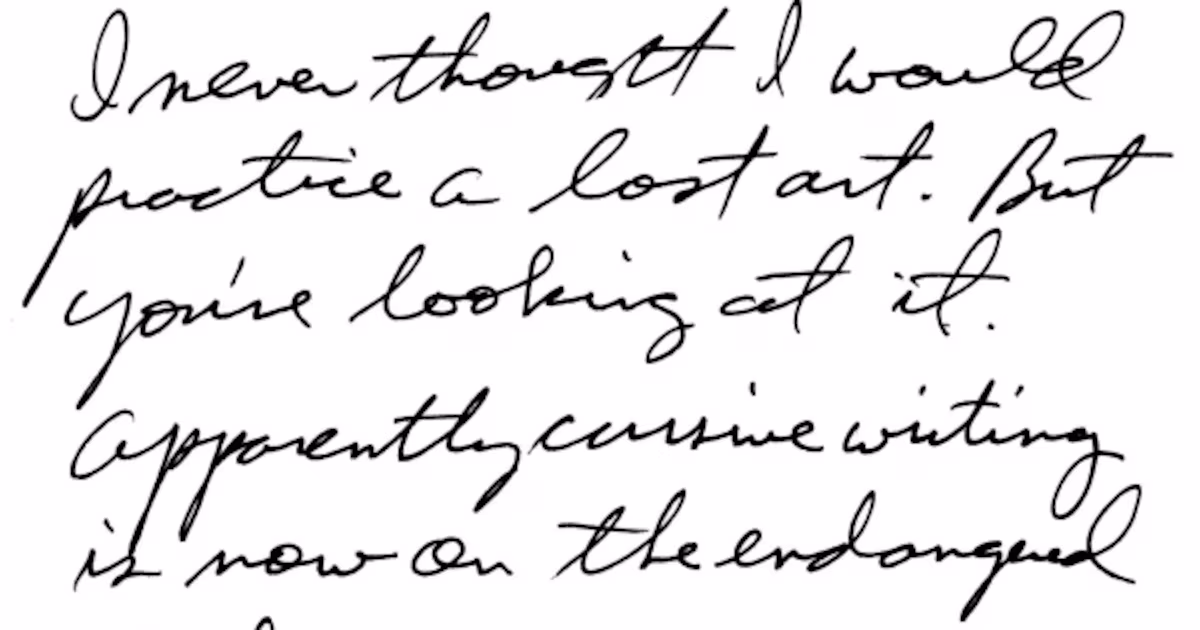 I never thought I would
practice a lost art. But
you're looking at it.
Apparently cursive writing
is now on the endangered